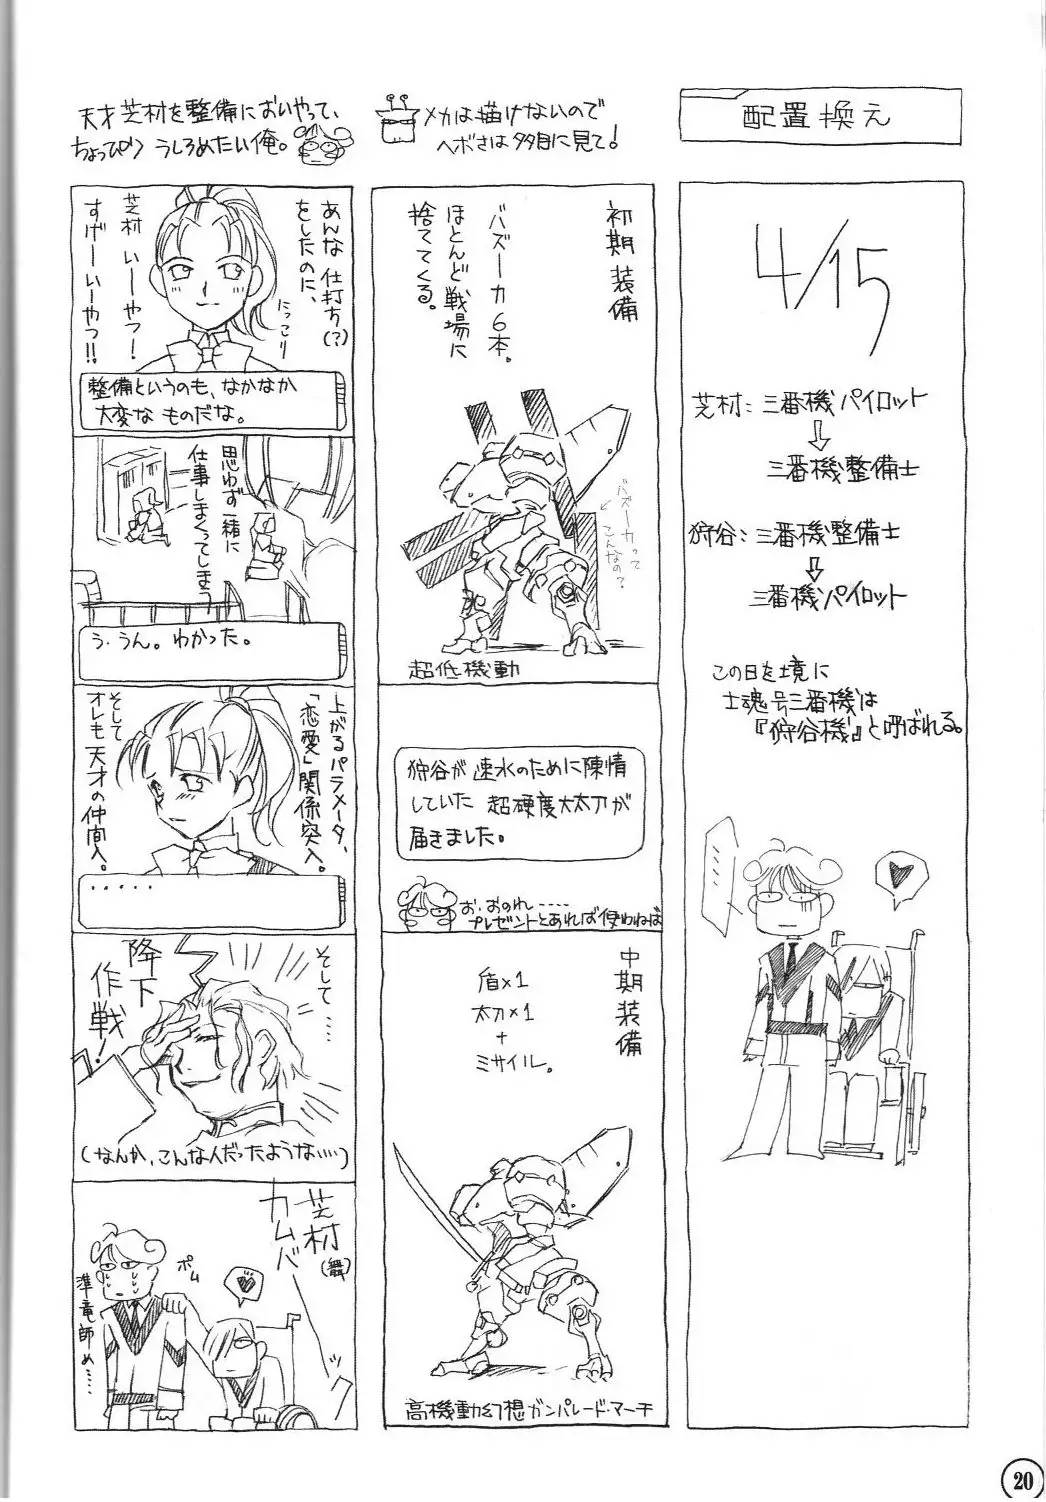 配置換え
4/15
芝村:三番機パイロット
⇩
三番機整備士
狩谷:三番機整備士
⇩
三番機パイロット
この日を境に
士魂号三番機は
『狩谷機』と呼ばれる。
メカは描けないので
ヘボさは多目に見て!
初期装備
バズーカ6本。
ほとんど戦場に
捨ててくる。
バズーカって
こんなの?
超低機動
狩谷が速水のために陳情
していた超硬度大太刀が
届きました。
お、おのれ‥‥
プレゼントとあれば使わねば
中期装備
盾×1
太刀×1
+
ミサイル。
高機動幻想ガンパレード・マーチ
天才芝村を整備においやって、
ちょっぴりうしろめたい俺。
あんな仕打ち(?)
をしたのに、
芝村いーやつー!
すげーいーやつ!!
にっこり
整備というのも、なかなか
大変なものだな。
思わず一緒に
仕事しまくってしまう
う・うん。わかった。
上がるパラメータ、
「恋愛」関係突入。
そして
オレも天才の仲間入。
・・・・・
そして‥‥
降下
作戦!
(なんか、こんな人だったような‥‥)
芝村(舞)
カムバーーッ
ポム
準竜師め‥‥
20